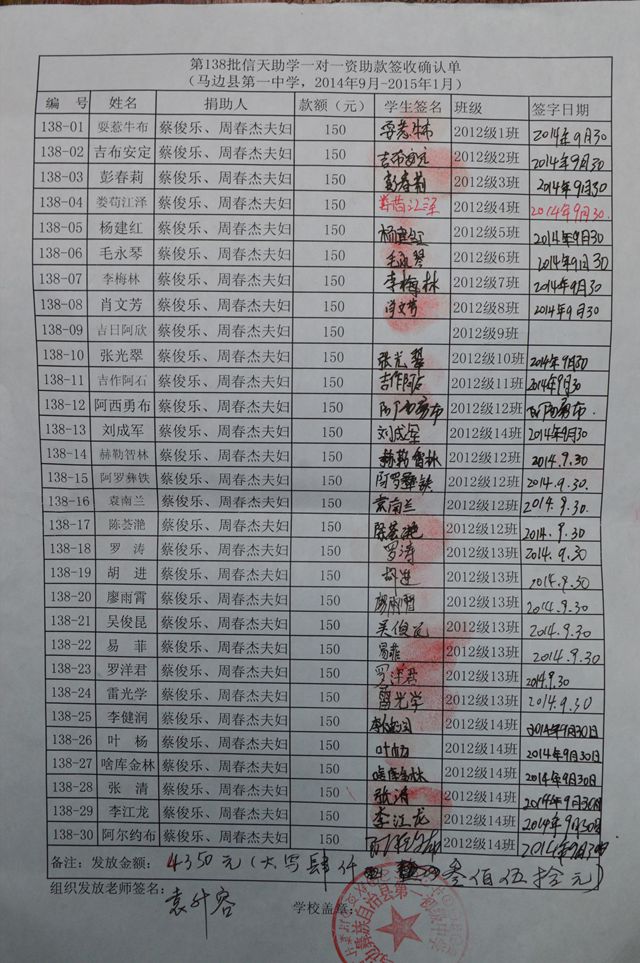 第138批信天助学一对一资助款签收确认单
（马边县第一中学，2014年9月-2015年1月）
编 号 姓名 捐助人 款额（元） 学生签名 班级 签字日期
138-01 耍惹牛布 蔡俊乐、周春杰夫妇 150 耍惹牛布 2012级1班 2014年9月30
138-02 吉布安定 蔡俊乐、周春杰夫妇 150 吉布安定 2012级2班 2014年9月30
138-03 彭春莉 蔡俊乐、周春杰夫妇 150 彭春莉 2012级3班 2014年9月30
138-04 娄荀江泽 蔡俊乐、周春杰夫妇 150 2012级4班 2014年9月30.
138-05 杨建红 蔡俊乐、周春杰夫妇 150 杨建红 2012级5班 2014年9月30
138-06 毛永琴 蔡俊乐、周春杰夫妇 150 毛永琴 2012级6班 2014年9月30
138-07 李梅林 蔡俊乐、周春杰夫妇 150 李梅林 2012级7班 2014年9月30
138-08 肖文芳 蔡俊乐、周春杰夫妇 150 肖文芳 2012级8班 2014年9月30
138-09 吉日阿欣 蔡俊乐、周春杰夫妇 150 2012级9班
138-10 张光翠 蔡俊乐、周春杰夫妇 150 张光翠 2012级10班 2014年9月30
138-11 吉作阿石 蔡俊乐、周春杰夫妇 150 吉作阿石 2012级11班 2014年9月30
138-12 阿西勇布 蔡俊乐、周春杰夫妇 150 阿西勇布 2012级12班 阿西勇布.
138-13 刘成军 蔡俊乐、周春杰夫妇 150 刘成军 2012级14班 2014年9月30
138-14 赫勒智林 蔡俊乐、周春杰夫妇 150 赫勒智林 2012级12班 2014.9.30
138-15 阿罗彝铁 蔡俊乐、周春杰夫妇 150 阿罗彝铁 2012级12班 2014.9.30.
138-16 袁南兰 蔡俊乐、周春杰夫妇 150 袁南兰 2012级12班 2014.9.30.
138-17 陈荟滟 蔡俊乐、周春杰夫妇 150 陈荟滟 2012级12班 2014.9.30
138-18 罗 涛 蔡俊乐、周春杰夫妇 150 罗涛 2012级13班 2014.9.30.
138-19 胡 进 蔡俊乐、周春杰夫妇 150 胡进 2012级13班 2014.9.30
138-20 廖雨霄 蔡俊乐、周春杰夫妇 150 廖雨霄 2012级13班 2014.9.30
138-21 吴俊昆 蔡俊乐、周春杰夫妇 150 吴俊昆 2012级13班 2014.9.30
138-22 易 菲 蔡俊乐、周春杰夫妇 150 易菲 2012级13班 2014.9.30
138-23 罗洋君 蔡俊乐、周春杰夫妇 150 罗洋君 2012级13班 2014.9.30
138-24 雷光学 蔡俊乐、周春杰夫妇 150 雷光学 2012级13班 2014.9.30
138-25 李健润 蔡俊乐、周春杰夫妇 150 李健润 2012级14班 2014年9月30日
138-26 叶 杨 蔡俊乐、周春杰夫妇 150 叶杨 2012级14班 2014年9月30日
138-27 啥库金林 蔡俊乐、周春杰夫妇 150 啥库金林 2012级14班 2014年9月30日
138-28 张 清 蔡俊乐、周春杰夫妇 150 张清 2012级14班 2014年9月30日
138-29 李江龙 蔡俊乐、周春杰夫妇 150 李江龙 2012级14班 2014年9月30日
138-30 阿尔约布 蔡俊乐、周春杰夫妇 150 阿尔约布 2012级14班 2014年9月30日
备注：发放金额：4350元（大写肆仟叁佰伍拾元）
组织发放老师签名：
学校盖章：